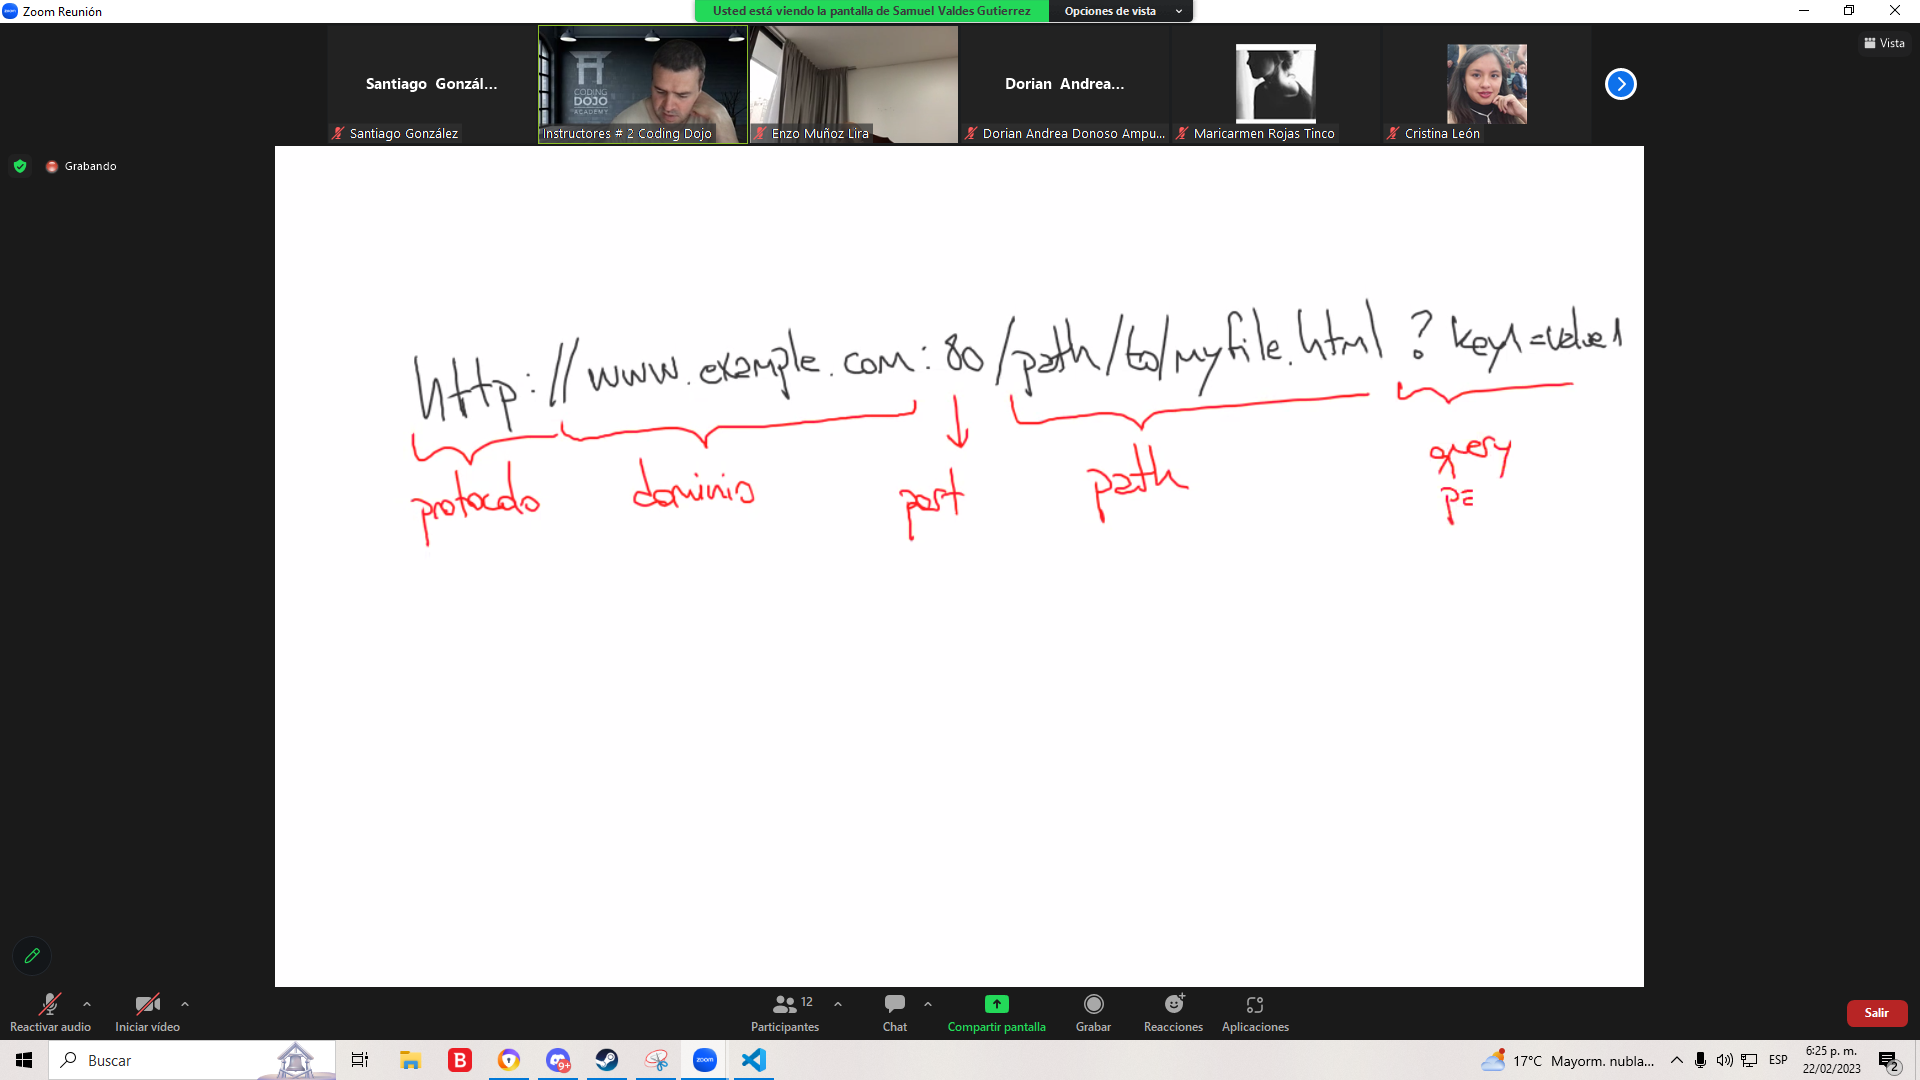 Zoom Reunión
Usted está viendo la pantalla de Samuel Valdes Gutierrez
Opciones de vista
Vista
Santiago Gonzál...
Dorian Andrea...
CODING
DOJO
ACADEMY
Santiago González
Instructores # 2 Coding Dojo
Enzo Muñoz Lira
Dorian Andrea Donoso Ampu...
Maricarmen Rojas Tinco
Cristina León
Grabando
http://www.example.com:80/path/to/myfile.html ? key1=value1
protocolo
dominio
port
path
query
pa
Reactivar audio
Iniciar vídeo
12
Participantes
Chat
Compartir pantalla
Grabar
Reacciones
Aplicaciones
Salir
Buscar
B
9+
zoom
17°C Mayorm. nubla...
ESP
6:25 p. m.
22/02/2023
2